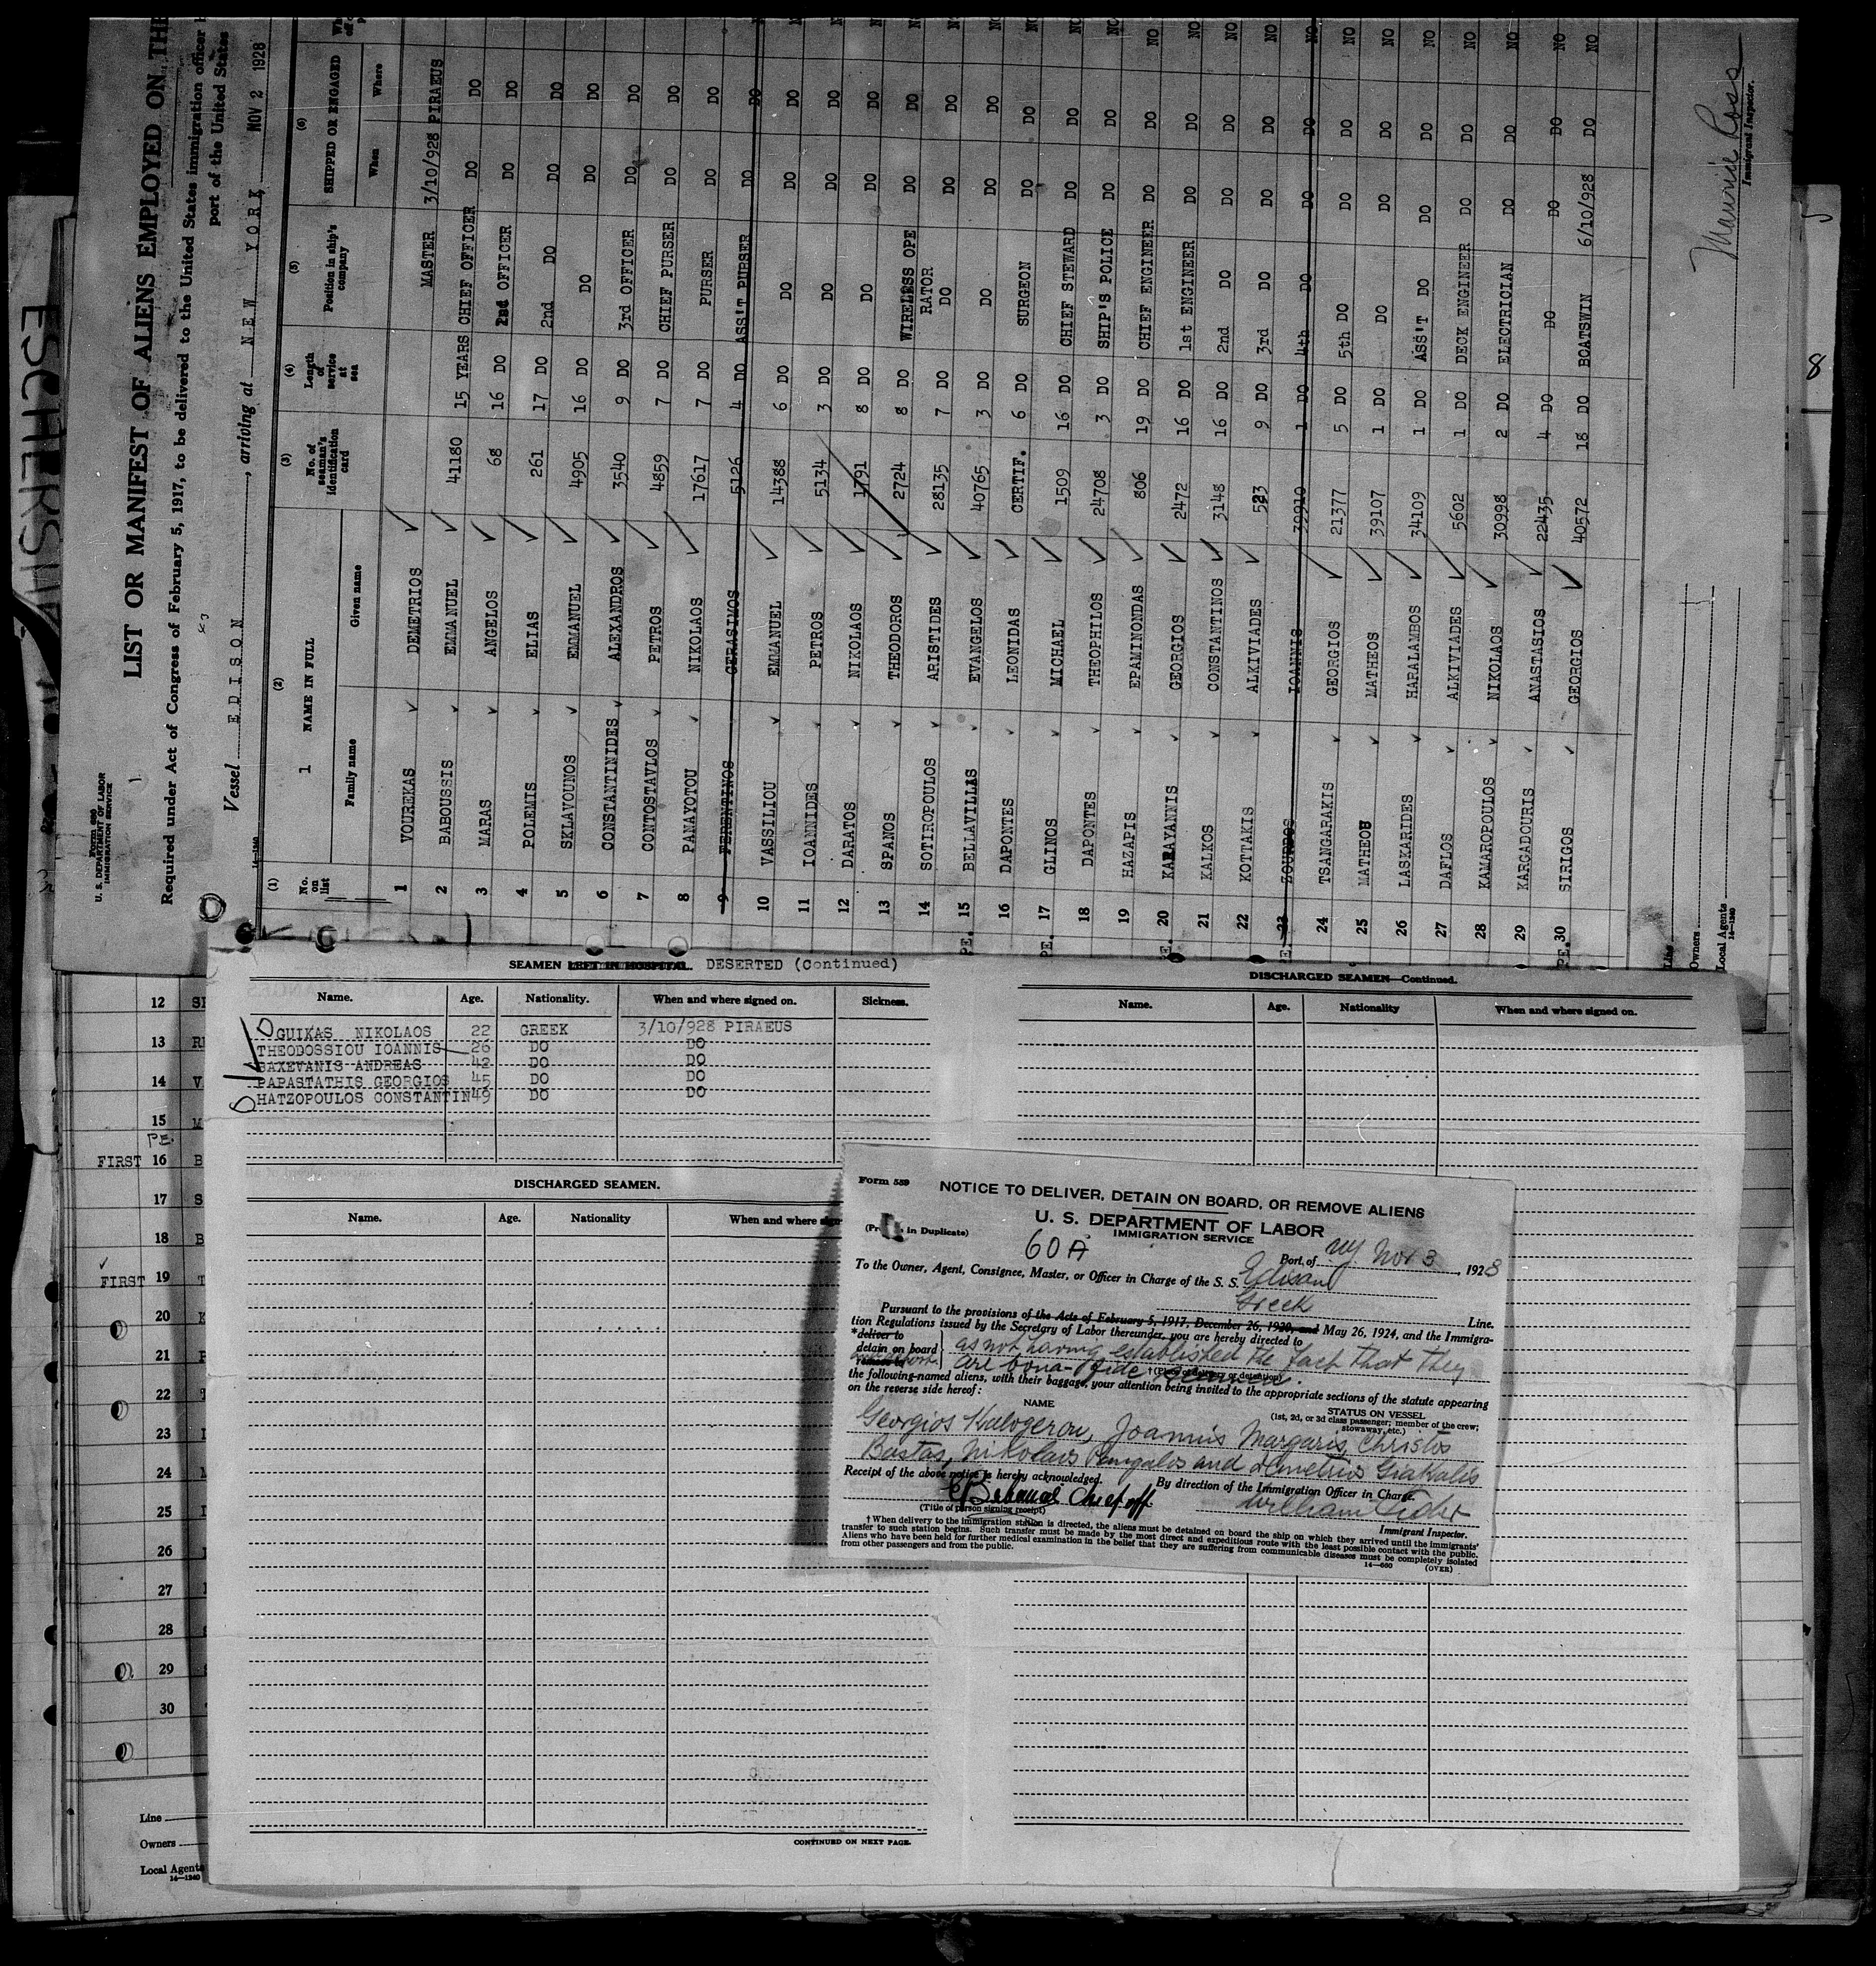 ESCHERSHE
Form 680
U. S. DEPARTMENT OF LABOR
IMMIGRATION SERVICE
LIST OR MANIFEST OF ALIENS EMPLOYED ON THE
Required under Act of Congress of February 5, 1917, to be delivered to the United States immigration officer
port of the United States
Vessel EDISON, arriving at NEW YORK NOV 2 1928
14-1240
(1) (2) (3) (4) (5) (6)
No. on list
1 NAME IN FULL
Family name Given name
No. of seaman's identification card
Length of service at sea
Position in ship's company
SHIPPED OR ENGAGED
When Where
1 VOUREKAS DEMETRIOS MASTER 3/10/928 PIRAEUS
2 BABOUSSIS EMMANUEL 41180 15 YEARS CHIEF OFFICER DO DO
3 MARAS ANGELOS 68 16 DO 2nd OFFICER DO DO NO
4 POLEMIS ELIAS 261 17 DO 2nd DO DO DO NO
5 SKLAVOUNOS EMMANUEL 4905 16 DO DO DO DO NO
6 CONSTANTINIDES ALEXANDROS 3540 9 DO 3rd OFFICER DO DO NO
7 CONTOSTAVLOS PETROS 4859 7 DO CHIEF PURSER DO DO NO
8 PANAYOTOU NIKOLAOS 17617 7 DO PURSER DO DO NO
9 FERENTINOS GERASIMOS 5126 4 DO ASS'T PURSER DO DO
10 VASSILIOU EMMANUEL 14388 6 DO DO DO DO NO
11 IOANNIDES PETROS 5134 3 DO DO DO DO NO
12 DARATOS NIKOLAOS 1791 8 DO DO DO DO NO
13 SPANOS THEODOROS 2724 8 DO WIRELESS OPE DO DO NO
RATOR
14 SOTIROPOULOS ARISTIDES 28135 7 DO DO DO DO NO
PE. 15 BELLAVILLAS EVANGELOS 40765 3 DO DO DO DO NO
16 DAPONTES LEONIDAS CERTIF. 6 DO SURGEON DO DO NO
PE. 17 GLINOS MICHAEL 1509 16 DO CHIEF STEWARD DO DO NO
18 DAPONTES THEOPHILOS 24708 3 DO SHIP'S POLICE DO DO NO
19 HAZAPIS EPAMINONDAS 806 19 DO CHIEF ENGINEER DO DO NO
PE. 20 KARAYANNIS GEORGIOS 2472 16 DO 1st ENGINEER DO DO NO
21 KALKOS CONSTANTINOS 3148 16 DO 2nd DO DO DO NO
22 KOTTAKIS ALKIVIADES 523 9 DO 3rd DO DO DO NO
PE. 23 IOANNIS 39910 1 DO 4th DO DO DO NO
24 TSANGARAKIS GEORGIOS 21377 5 DO 5th DO DO DO NO
25 MATHEOU MATHEOS 39107 1 DO DO DO DO NO
26 LASKARIDES HARALAMBOS 34109 1 DO ASS'T DO DO DO NO
27 DAFLOS ALKIVIADES 5602 1 DO DECK ENGINEER DO DO NO
28 KAMAROPOULOS NIKOLAOS 30998 2 DO ELECTRICIAN DO DO NO
29 KARGADOURIS ANASTASIOS 22435 4 DO DO DO DO NO
PE. 30 SIRIGOS GEORGIOS 40572 18 DO BOATSWIN 6/10/928 DO NO
Line
Owners
Local Agents
14-1240
Immigrant Inspector.
SEAMEN LEFT IN HOSPITAL. DESERTED (Continued)
Name. Age. Nationality. When and where signed on. Sickness.
GUIKAS NIKOLAOS 22 GREEK 3/10/928 PIRAEUS
THEODOSSIOU IOANNIS 26 DO DO
SAXEVANIS ANDREAS 42 DO DO
PAPASTATHIS GEORGIOS 45 DO DO
HATZOPOULOS CONSTANTIN 49 DO DO
DISCHARGED SEAMEN—Continued.
Name. Age. Nationality When and where signed on.
DISCHARGED SEAMEN.
Name. Age. Nationality When and where sign
CONTINUED ON NEXT PAGE.
Form 559
NOTICE TO DELIVER, DETAIN ON BOARD, OR REMOVE ALIENS
U. S. DEPARTMENT OF LABOR
IMMIGRATION SERVICE
(Pr in Duplicate)
60A
Port of NY. Nov 3, 1928
To the Owner, Agent, Consignee, Master, or Officer in Charge of the S. S. Edison
Greek Line.
Pursuant to the provisions of the Acts of February 5, 1917, December 26, 1920, and May 26, 1924, and the Immigra-
tion Regulations issued by the Secretary of Labor thereunder, you are hereby directed to
*deliver to
detain on board
remove to
as not having established the fact that they
are bona-fide seamen.
†(Place of delivery or detention)
the following-named aliens, with their baggage, your attention being invited to the appropriate sections of the statute appearing
on the reverse side hereof:
NAME
STATUS ON VESSEL
(1st, 2d, or 3d class passenger; member of the crew; stowaway, etc.)
Georgios Kalogerou, Joannis Margaris, Christos
Bustas, Nikolaos Pangalos and Demetrios Giakalis
Receipt of the above notice is hereby acknowledged.
By direction of the Immigration Officer in Charge.
Chief off
(Title of person signing receipt)
Immigrant Inspector.
†When delivery to the immigration station is directed, the aliens must be detained on board the ship on which they arrived until the immigrants'
transfer to such station begins. Such transfer must be made by the most direct and expeditious route with the least possible contact with the public.
Aliens who have been held for further medical examination in the belief that they are suffering from communicable diseases must be completely isolated
from other passengers and from the public.
14-660
(OVER)
12 SP
13
14 V
15 M
PE.
FIRST 16 B
17 S
18 B
FIRST 19 T
20 K
21
22
23
24
25
26
27
28
29
30
Line
Owners
Local Agents
14-1240
8